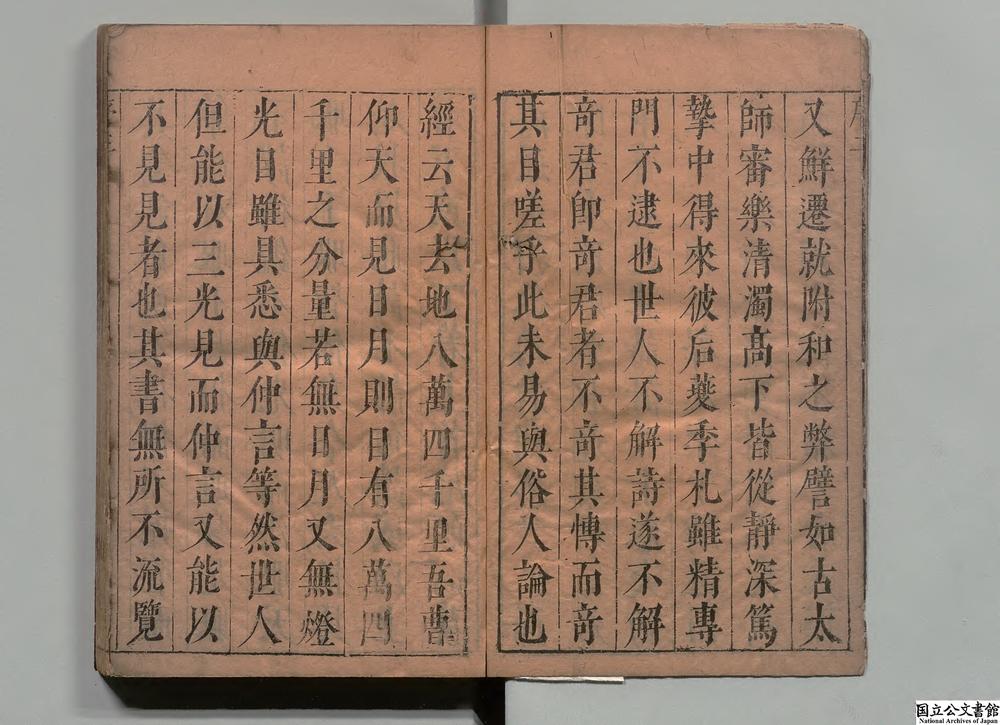 又鮮遷就附和之弊譬如古太
師審樂清濁高下皆從靜深篤
摯中得來彼后夔季札雖精專
門不逮也世人不解詩遂不解
奇君即奇君者不奇其傳而奇
其目嗟乎此未易與俗人論也
經云天去地八萬四千里吾曹
仰天而見日月則目有八萬四
千里之分量若無日月又無燈
光目雖具悉與仲言等然世人
但能以三光見而仲言又能以
不見見者也其書無所不流覽
国立公文書館
National Archives of Japan